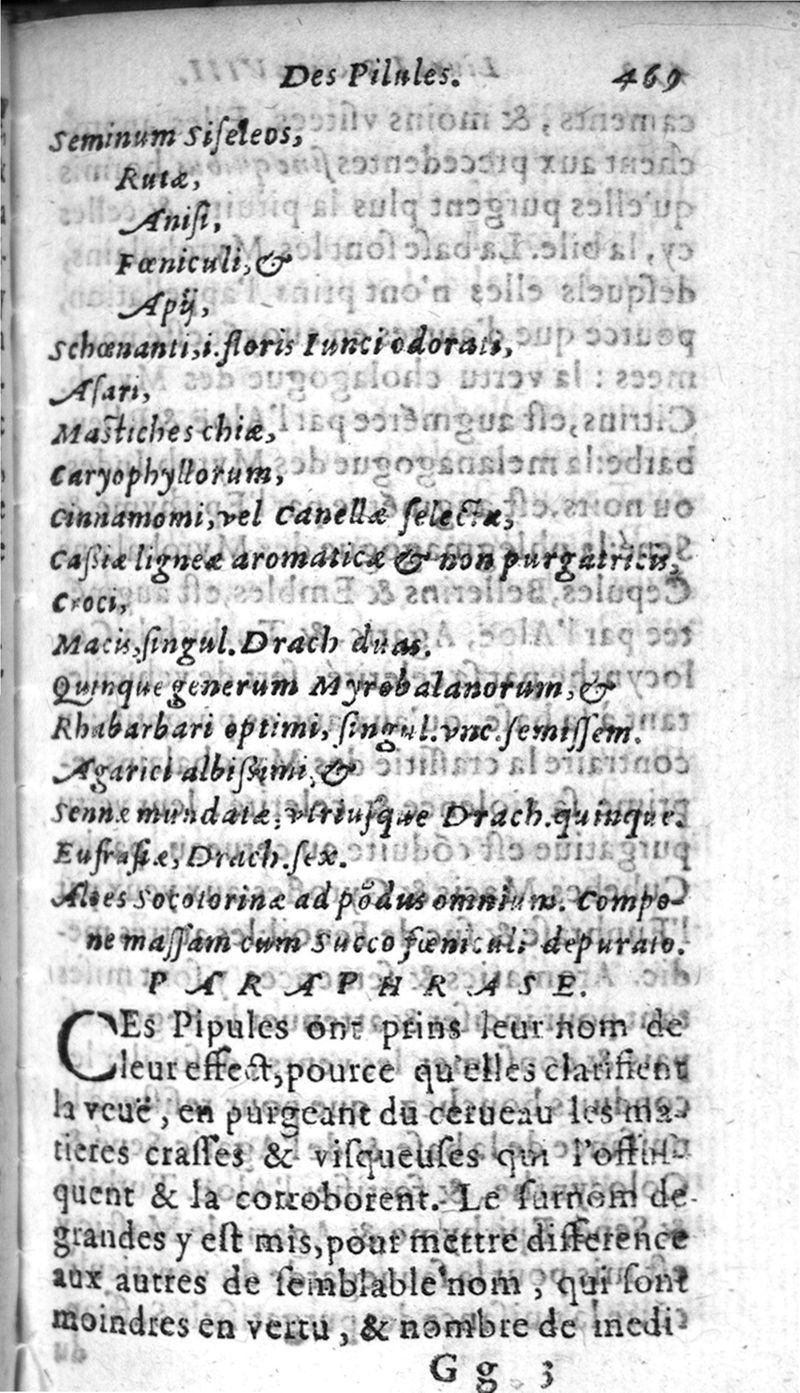 Des Pilules. 469
Seminum Siſeleos,
Rutæ,
Aniſi,
Fœniculi, &
Apij,
Schœnanti, i. floris Iunci odorati,
Aſari,
Mastiches chiæ,
Caryophyllorum,
Cinnamomi, vel Canellæ ſelectæ,
Caſſiæ ligneæ aromaticæ & non purgatricis,
Croci,
Macis, ſingul. Drach duas.
Quinque generum Myrobalanorum, &
Rhabarbari optimi, ſingul. vnc. ſemiſſem.
Agarici albiſſimi, &
Sennæ mundatæ, vtriuſque Drach. quinque.
Eufraſiæ, Drach. ſex.
Aloes Socotorinæ ad põdus omnium. Compo-
ne maſſam cum Succo fœniculi depurato.
PARAPHRASE.
CEs Pipules ont prins leur nom de
leur effect, pource qu'elles clarifient
la veuë, en purgeant du cerueau les ma-
tieres craſſes & viſqueuſes qui l'offuſ-
quent & la corroborent. Le ſurnom de
grandes y eſt mis, pour mettre difference
aux autres de ſemblable nom, qui ſont
moindres en vertu, & nombre de medi
Gg 3